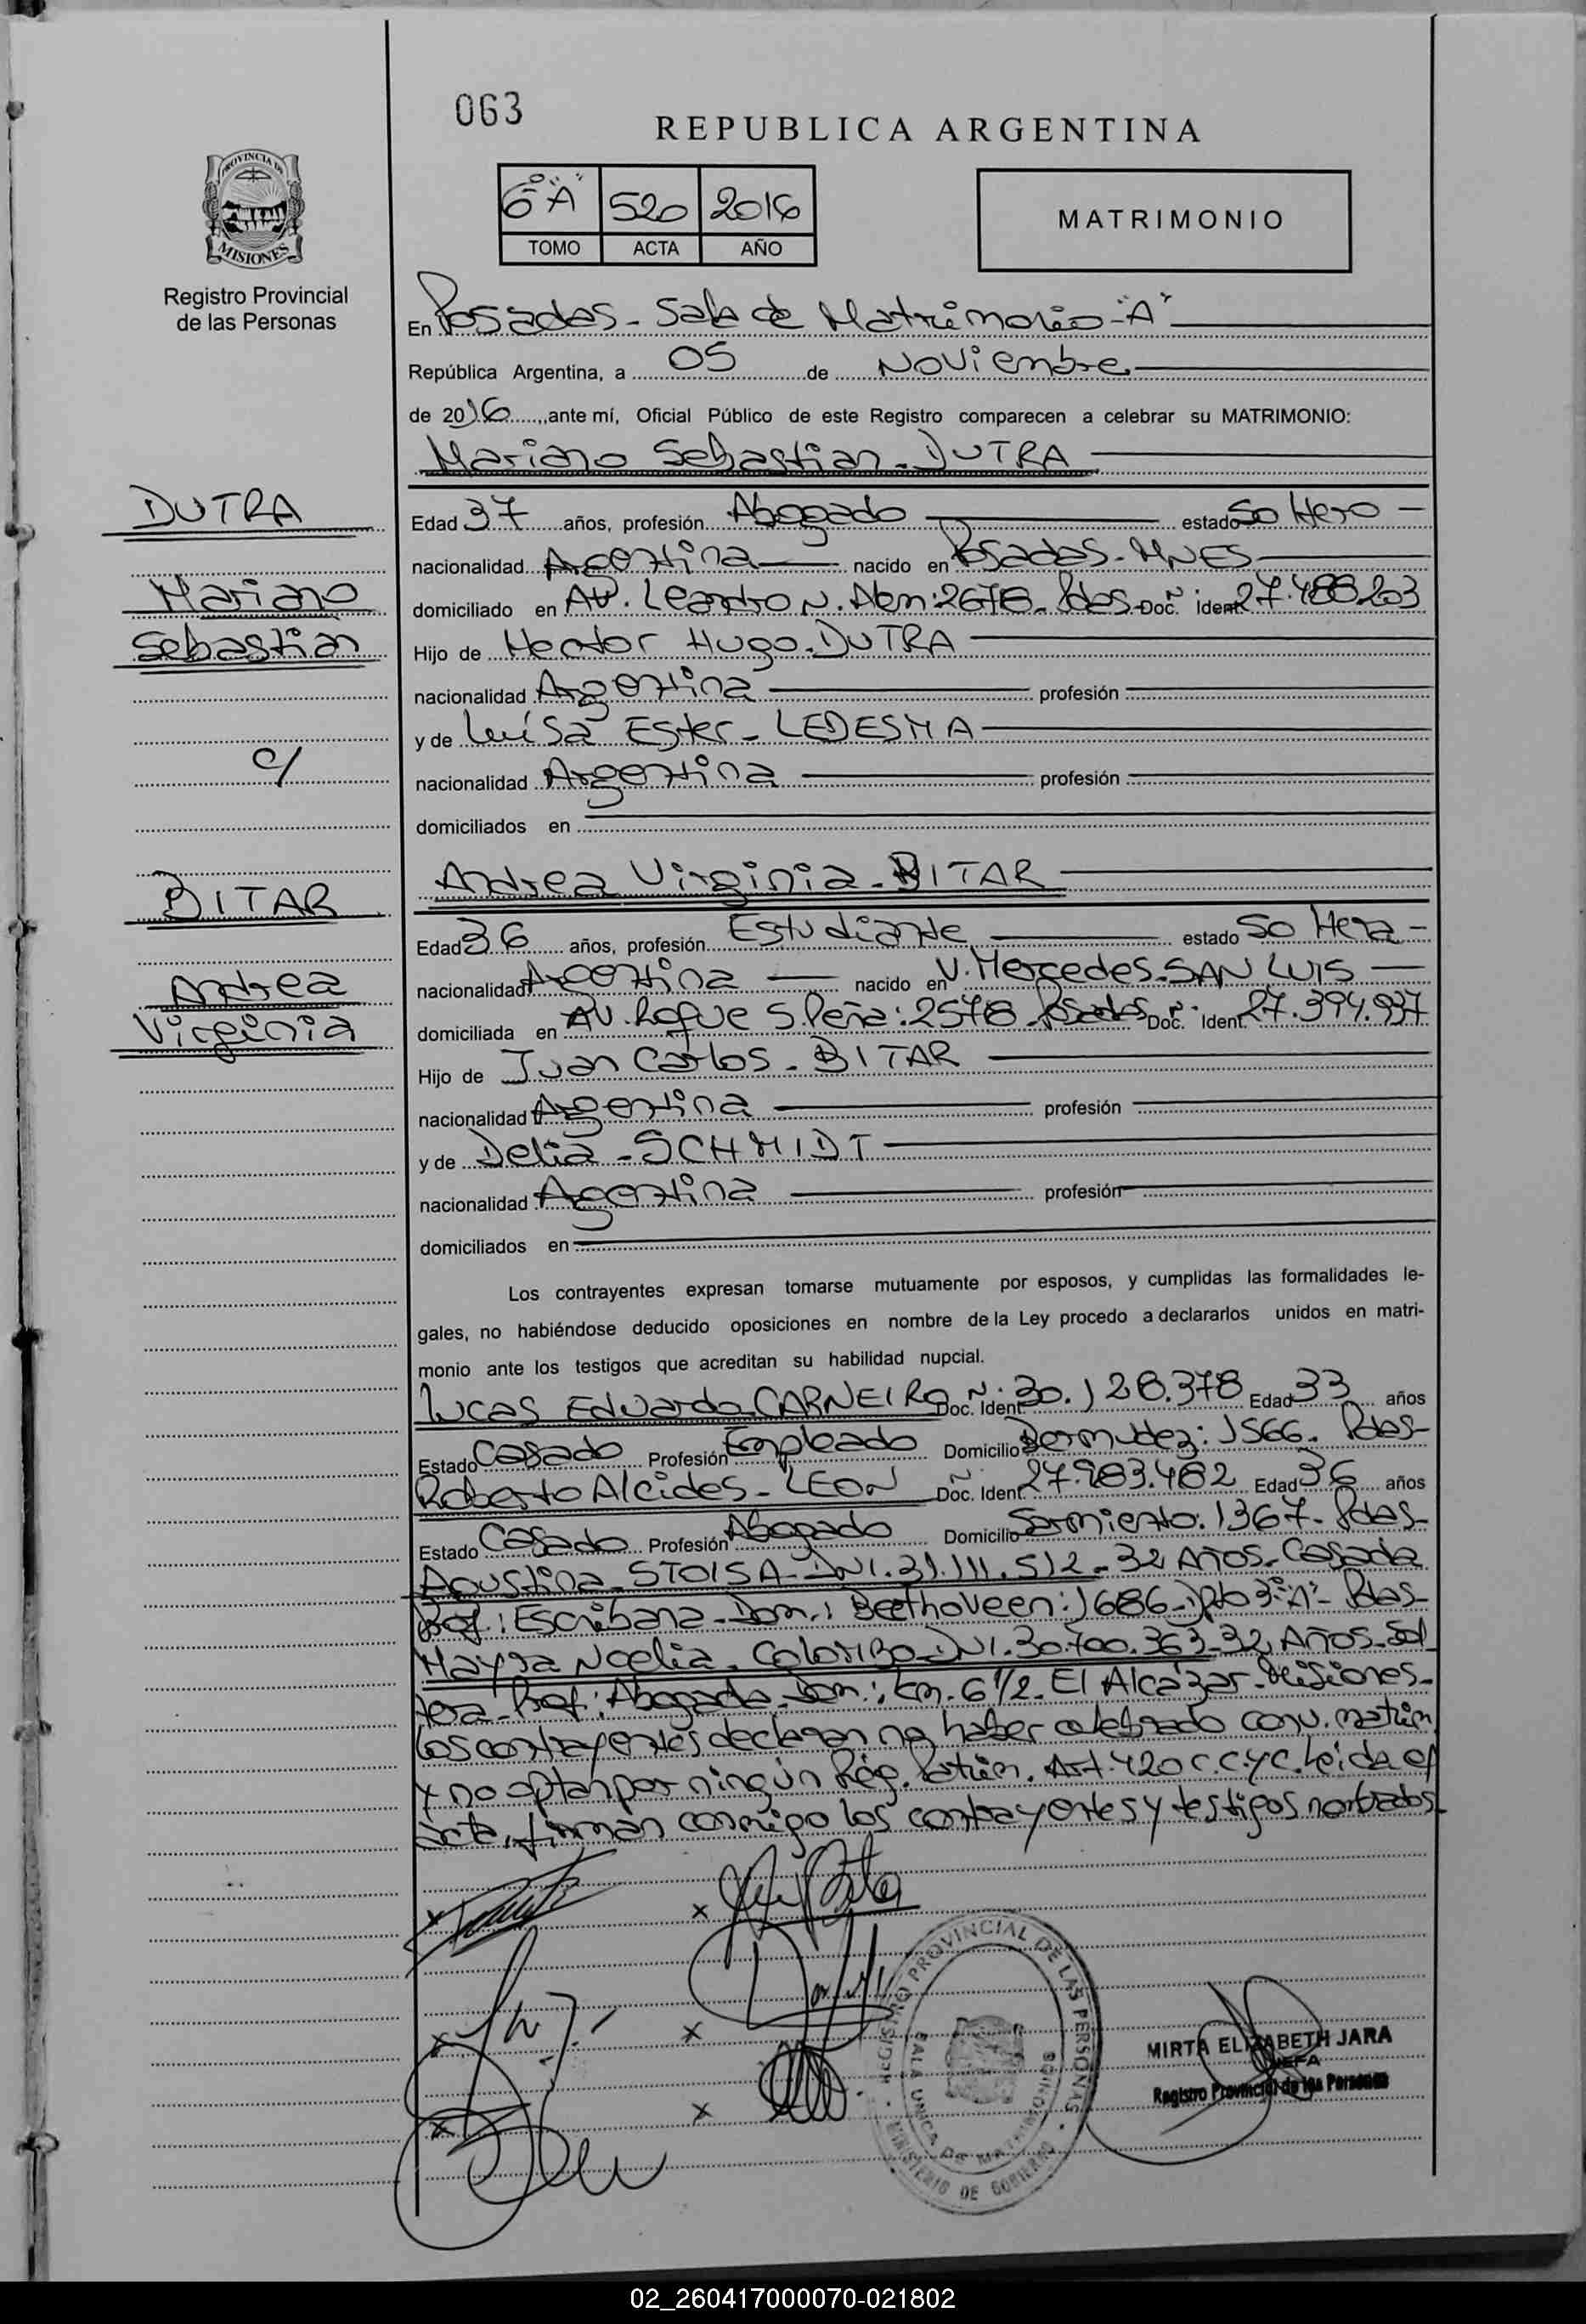 063
REPUBLICA ARGENTINA
PROVINCIA DE
MISIONES
Registro Provincial
de las Personas
6º"A" 520 2016
TOMO ACTA AÑO
MATRIMONIO
En Posadas - Sala de Matrimonio - "A"
República Argentina, a 05 de Noviembre
de 2016, ante mí, Oficial Público de este Registro comparecen a celebrar su MATRIMONIO:
Mariano Sebastian - DUTRA
DUTRA
Mariano
Sebastian
c/
BITAR
Andrea
Virginia
Edad 37 años, profesión Abogado estado Soltero -
nacionalidad Argentina nacido en Posadas - MNES
domiciliado en Av. Leandro N. Alem: 2678 - Pdas - Doc. Ident. 27.488.203
Hijo de Hector Hugo - DUTRA
nacionalidad Argentina profesión
y de Luisa Ester - LEDESMA
nacionalidad Argentina profesión
domiciliados en
Andrea Virginia - BITAR
Edad 36 años, profesión Estudiante estado Soltera -
nacionalidad Argentina nacido en V. Mercedes - SAN LUIS
domiciliada en AV. Roque S. Peña: 2578 - Posadas Doc. Ident. 27.394.937
Hijo de Juan Carlos - BITAR
nacionalidad Argentina profesión
y de Delia - SCHMIDT
nacionalidad Argentina profesión
domiciliados en
Los contrayentes expresan tomarse mutuamente por esposos, y cumplidas las formalidades le-
gales, no habiéndose deducido oposiciones en nombre de la Ley procedo a declararlos unidos en matri-
monio ante los testigos que acreditan su habilidad nupcial.
Lucas Eduardo - CARNEIRO Doc. Ident. Nº: 30.128.378 Edad 33 años
Estado Casado Profesión Empleado Domicilio Bermudez: 1566 - Pdas -
Roberto Alcides - LEON Doc. Ident. 27.983.482 Edad 36 años
Estado Casado Profesión Abogado Domicilio Sarmiento: 1367 - Pdas -
Agustina - STOISA - DNI. 31.111.512 - 32 Años - Casada
Prof.: Escribana - Dom.: Beethoveen: 1686 - Dpto 3º "A" - Pdas -
Mayra Noelia - COLOMBO - DNI. 30.700.363 - 32 Años - Sol
tera - Prof.: Abogada - Dom.: Km. 6 1/2 - El Alcázar - Misiones -
Los contrayentes declaran no haber celebrado conv. matrim.
y no optan por ningún Rég. Patrim. Art. 420 C.C.y C. Leída el
acta, firman conmigo los contrayentes y testigos nombrados -
REGISTRO PROVINCIAL DE LAS PERSONAS
SALA UNICA DE MATRIMONIOS
MINISTERIO DE GOBIERNO
MIRTA ELIZABETH JARA
JEFA
Registro Provincial de las Personas
02_260417000070-021802